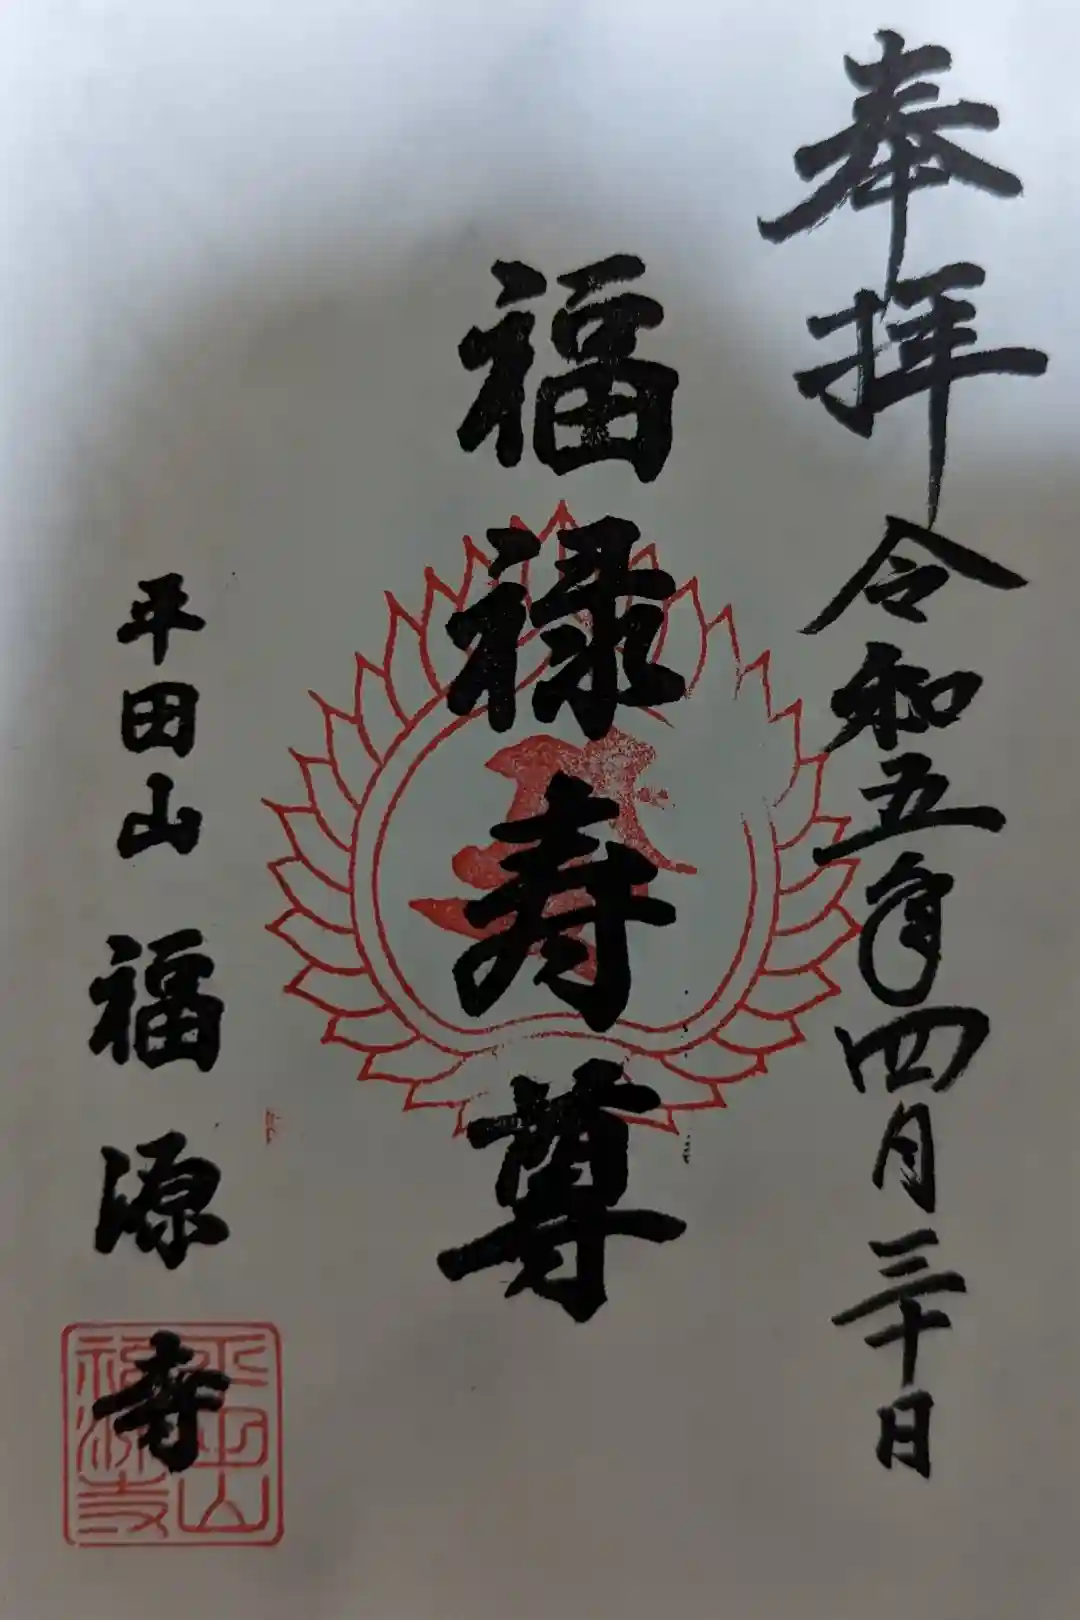 奉拝
令和五年四月三十日
福禄寿尊
平田山
福源寺
平田山
福源寺